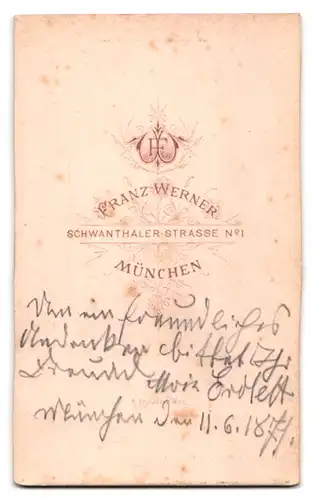 FRANZ WERNER
SCHWANTHALER-STRASSE No 1
MÜNCHEN
Um ein freundliches
Andenken bittet Ihr
Freund
München den 11.6.1877.